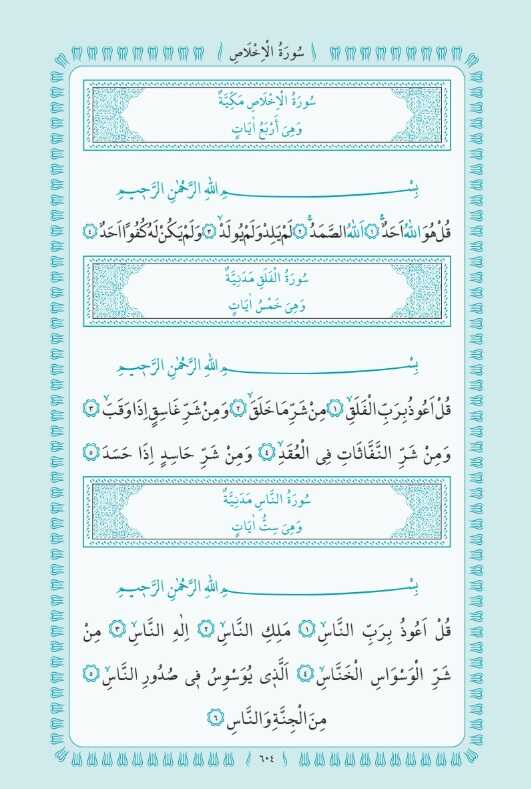 سُورَةُ الْاِخْلَاصِ
سُورَةُ الْاِخْلَاصِ مَكِّيَّةٌ
وَهِيَ أَرْبَعُ اٰيَاتٍ
بِسْمِ اللهِ الرَّحْمٰنِ الرَّحِيمِ
قُلْ هُوَ اللهُ اَحَدٌۚ ١ اَللهُ الصَّمَدُۚ ٢ لَمْ يَلِدْ وَلَمْ يُولَدْۙ ٣ وَلَمْ يَكُنْ لَهُ كُفُوًا اَحَدٌ ٤
سُورَةُ الْفَلَقِ مَدَنِيَّةٌ
وَهِيَ خَمْسُ اٰيَاتٍ
بِسْمِ اللهِ الرَّحْمٰنِ الرَّحِيمِ
قُلْ اَعُوذُ بِرَبِّ الْفَلَقِۙ ١ مِنْ شَرِّ مَا خَلَقَۙ ٢ وَمِنْ شَرِّ غَاسِقٍ اِذَا وَقَبَۙ ٣
وَمِنْ شَرِّ النَّفَّاثَاتِ فِى الْعُقَدِۙ ٤ وَمِنْ شَرِّ حَاسِدٍ اِذَا حَسَدَ ٥
سُورَةُ النَّاسِ مَدَنِيَّةٌ
وَهِيَ سِتُّ اٰيَاتٍ
بِسْمِ اللهِ الرَّحْمٰنِ الرَّحِيمِ
قُلْ اَعُوذُ بِرَبِّ النَّاسِۙ ١ مَلِكِ النَّاسِۙ ٢ اِلٰهِ النَّاسِۙ ٣ مِنْ
شَرِّ الْوَسْوَاسِ الْخَنَّاسِۙ ٤ اَلَّذِى يُوَسْوِسُ فِى صُدُورِ النَّاسِۙ ٥
مِنَ الْجِنَّةِ وَالنَّاسِ ٦
٦٠٤